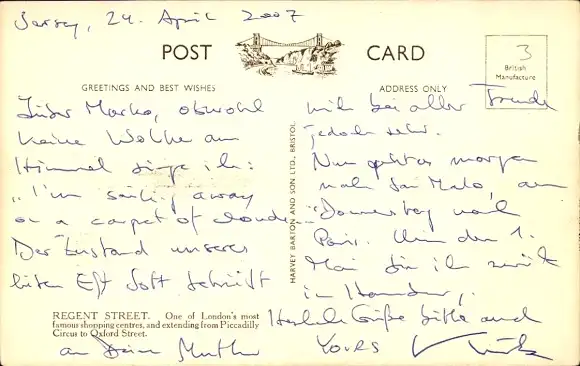 Jersey, 24. April 2007
POST CARD
3
British
Manufacture
GREETINGS AND BEST WISHES
ADDRESS ONLY
Marko, obwohl
keine Wolke am
Himmel singe ich:
"I'm sailing away
on a carpet of clouds"
Der Zustand unseres
Gott
mich bei aller Freude
jedoch sehr.
Nun geht es morgen
nach San Malo, am
Donnerstag nach
Paris. Um den 1.
Mai bin ich zurück
in
Herzliche Grüße bitte auch
an Deine Mutter
YOURS
HARVEY BARTON AND SON LTD., BRISTOL.
REGENT STREET. One of London's most
famous shopping centres, and extending from Piccadilly
Circus to Oxford Street.